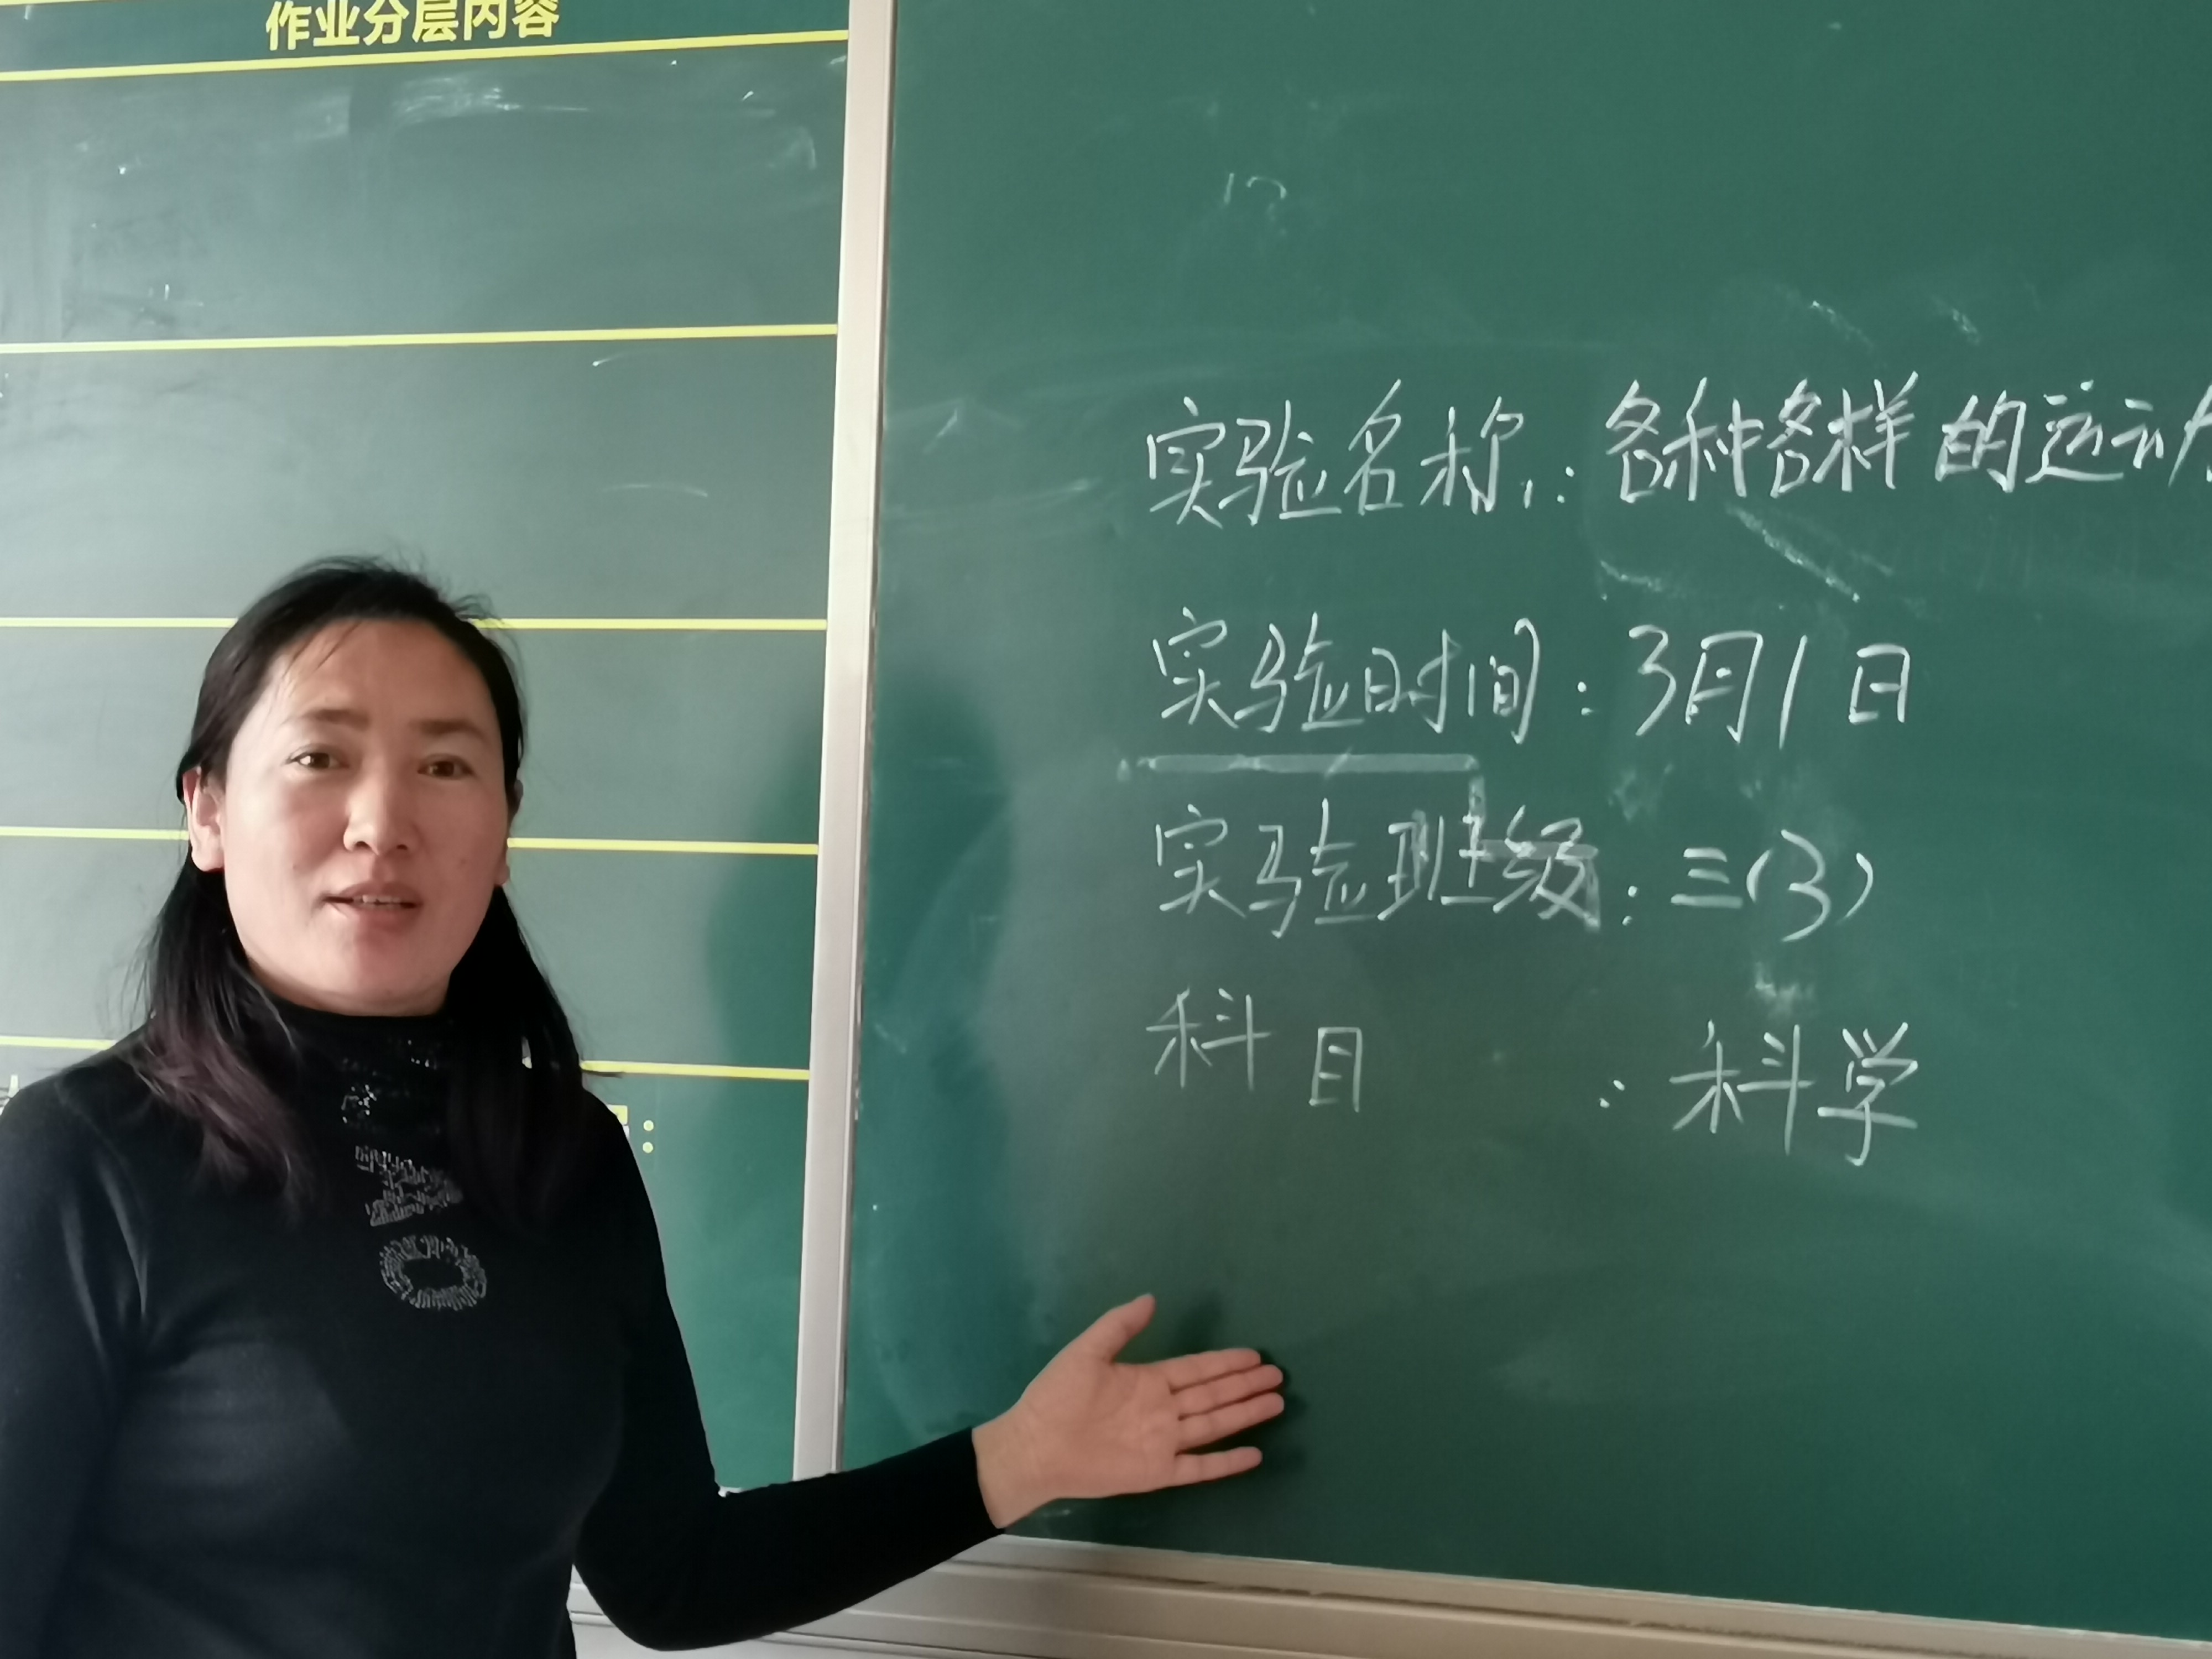 作业分层内容
实验名称：各种各样的运动
实验时间：3月1日
实验班级：三(3)
科目：科学